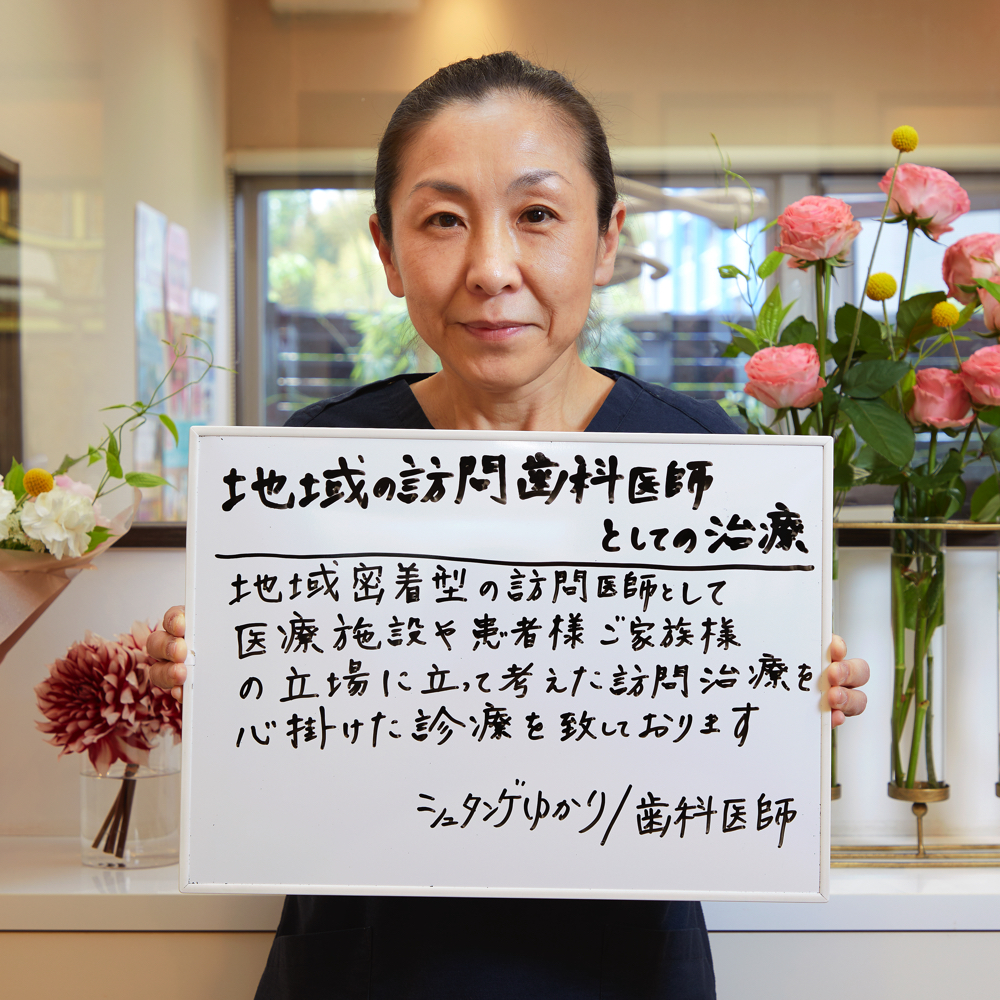 地域の訪問歯科医師
としての治療
地域密着型の訪問医師として
医療施設や患者様ご家族様
の立場に立って考えた訪問治療を
心掛けた診療を致しております
シュタンゲゆかり/歯科医師